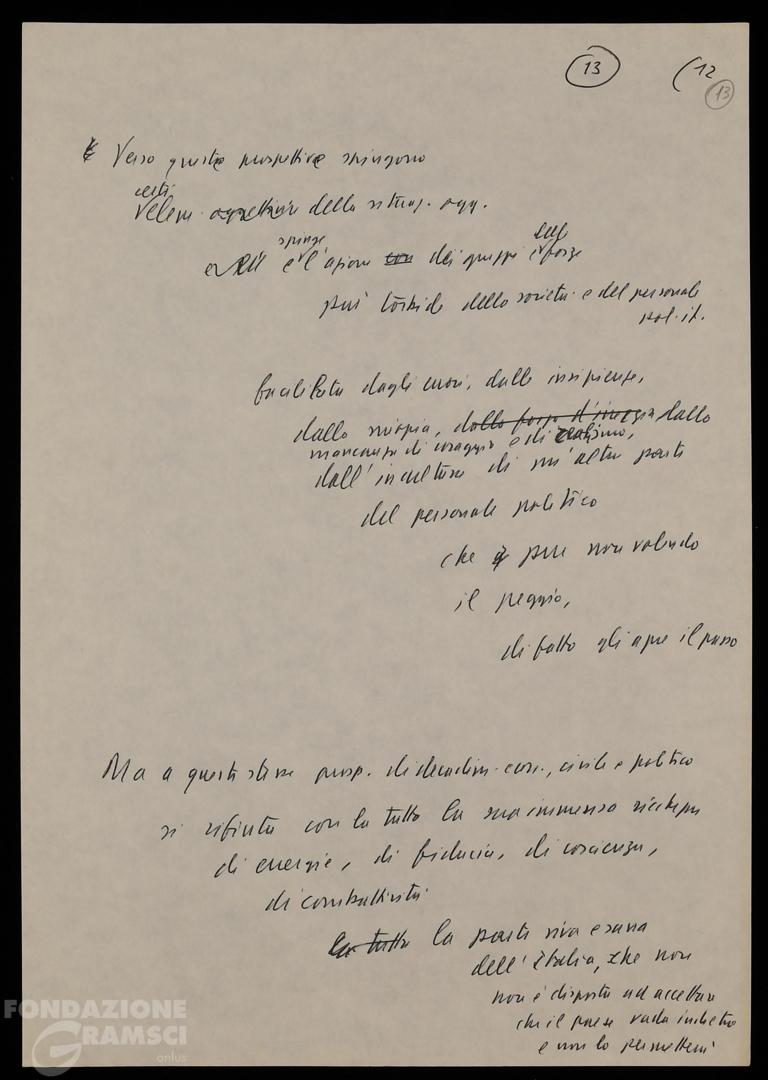 13 (12
13
Verso queste prospettive spingono
certi
veleni oggettivi della situaz. ogg.
spinge sulle
e l'azione con dei gruppi e forze
più torbide della società e del personale
pol. it.
facilitata dagli errori, dalle insipienze,
dalla miopia, dalla forza d'inerzia dalla
mancanza di coraggio e di realismo,
dall'incultura di un'altra parte
del personale politico
che pur non volendo
il peggio,
di fatto gli apre il passo
Ma a questa stessa prosp. di decadim. econ., civile e politico
si rifiuta con la tutta la sua immensa ricchezza
di energie, di fiducia, di coscienza,
di combattività
la tutta la parte viva e sana
dell'Italia, che non
non è disposta ad accettare
che il paese vada indietro
e non lo permetterà
FONDAZIONE
GRAMSCI
onlus